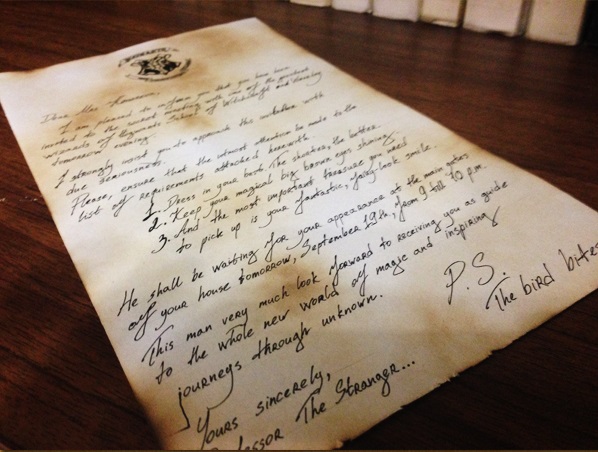 HOGWARTS
Dear Mrs.
I am pleased to inform you that you have been
invited to the secret meeting with one of the greatest
wizards of Hogwarts School of Witchcraft and Wizardry
tomorrow evening.
I strongly insist you to approach this invitation with
due seriousness.
Please, ensure that the utmost attention be made to the
list of requirements attached herewith.
1. Dress in your best. The shorter, the better.
2. Keep your magical big brown eyes shining.
3. And the most important treasure you need
to pick up is your fantastic, foxy-look smile.
He shall be waiting for your appearance at the main gates
of your house tomorrow, September 19th, from 9 till 10 p.m.
This man very much look forward to receiving you as guide
to the whole new world of magic and inspiring
journeys through unknown.
Yours sincerely,
Professor The Stranger...
P.S.
The bird bites